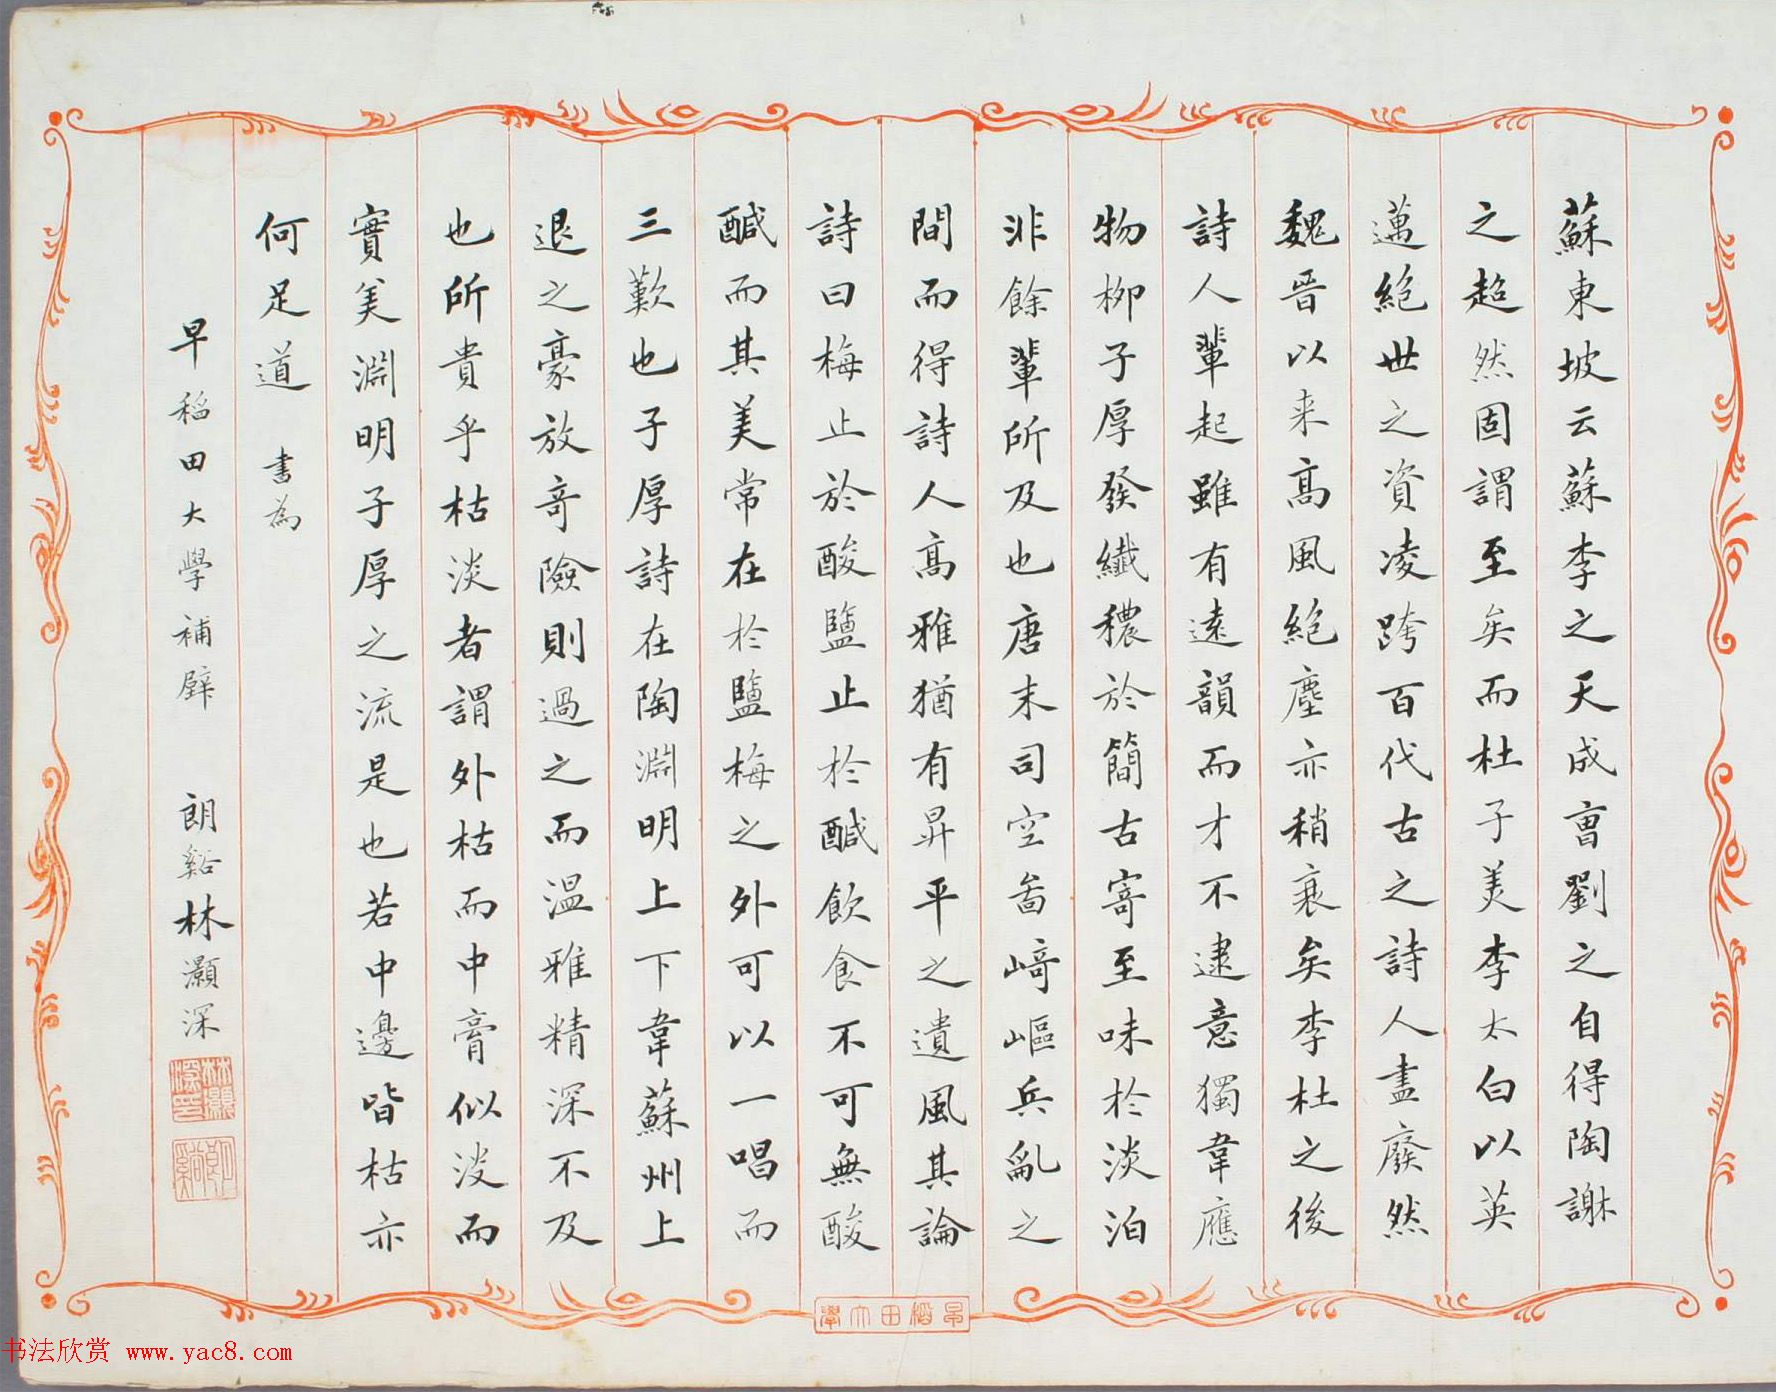 蘇東坡云蘇李之天成曺劉之自得陶謝
之超然固謂至矣而杜子美李太白以英
邁絶世之資凌跨百代古之詩人盡廢然
魏晉以来髙風絶塵亦稍衰矣李杜之後
詩人輩起雖有遠韻而才不逮意獨韋應
物柳子厚發纎穠於簡古寄至味於淡泊
非餘輩所及也唐末司空啚崎嶇兵亂之
間而得詩人髙雅猶有昇平之遺風其論
詩曰梅止於酸鹽止於醎飲食不可無酸
醎而其美常在於鹽梅之外可以一唱而
三歎也子厚詩在陶淵明上下韋蘇州上
退之豪放竒險則過之而温雅精深不及
也所貴乎枯淡者謂外枯而中膏似淡而
實美淵明子厚之流是也若中邊皆枯亦
何足道 書為
早稻田大學補壁 朗谿林灝深
林灝深印
朗谿
早稻田大學
书法欣赏 www.yac8.com